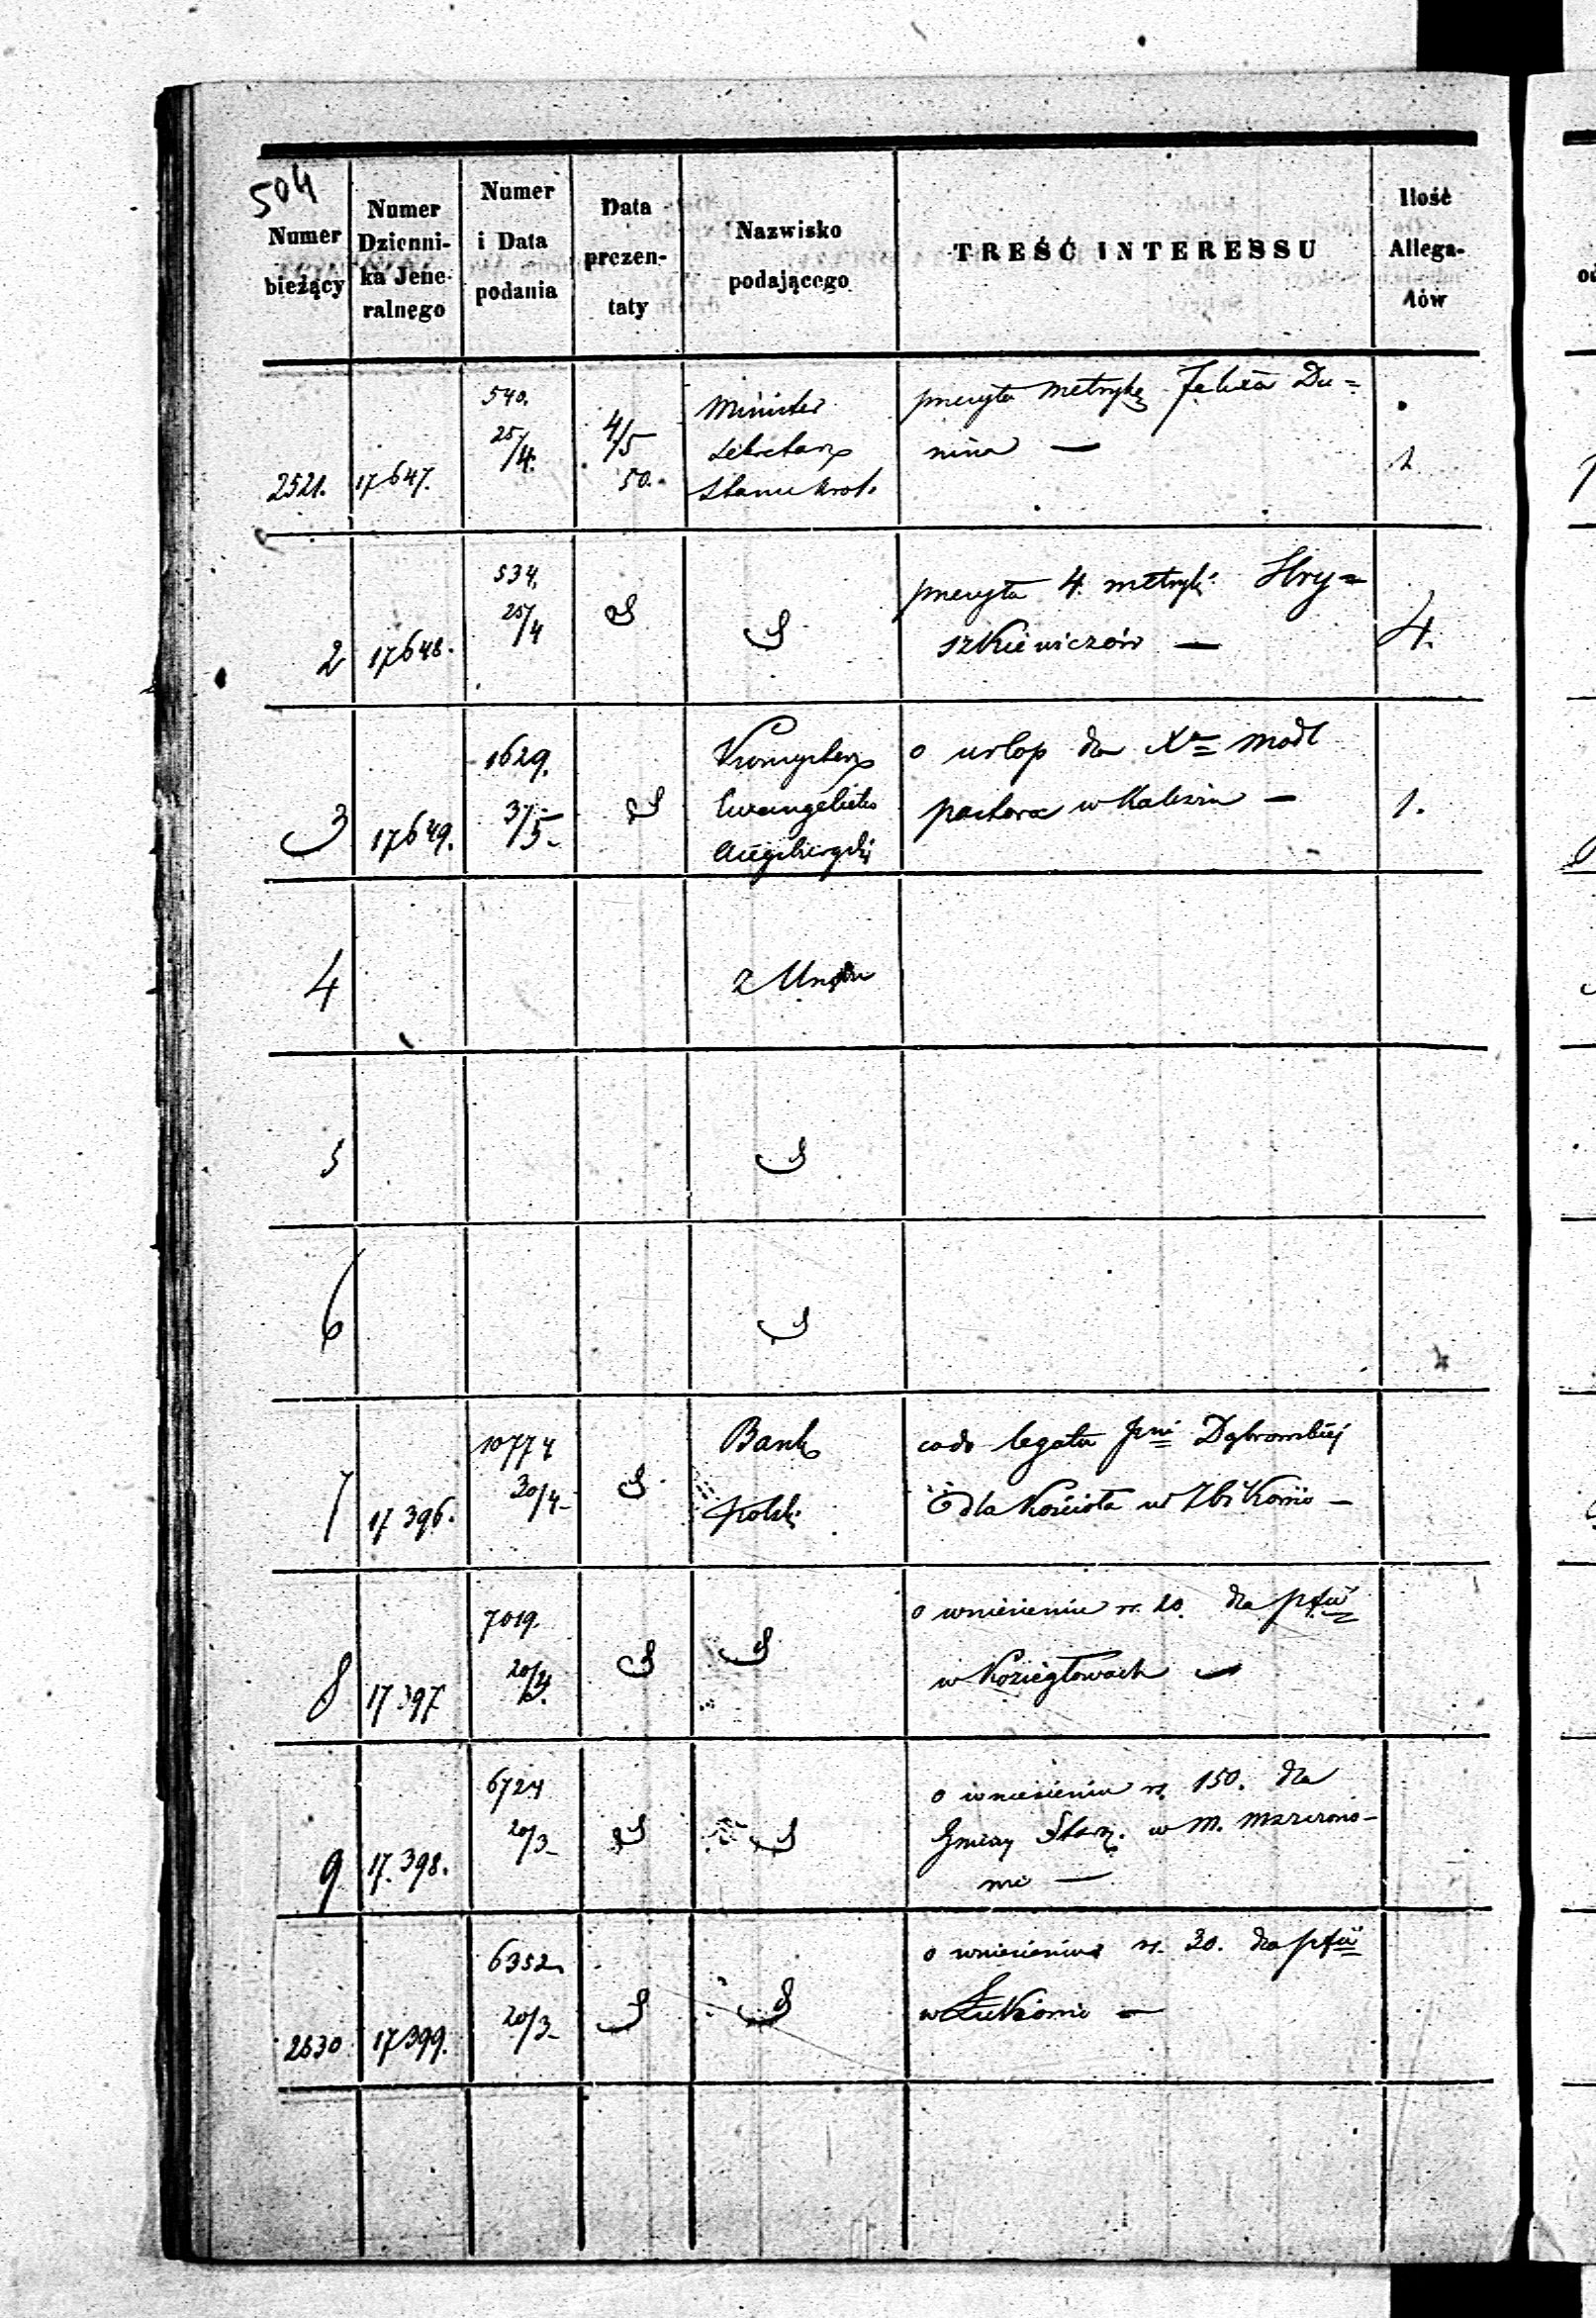 504
Numer bieżący
Numer Dzienni- ka Jene- ralnego
Numer i Data podania
Data prezen- taty
Nazwisko podającego
TREŚĆ INTERESSU
Ilość Allega- tów
2521. 17647. 540. 25/4. 4/5 50. Minister Sekretarz Stanu Król. przesyła metrykę Felixa Du=
nina — 1
2 17648. 534. 25/4 przesyła 4. metryki Hry=
szkiewiczów — 4.
3 17649. 1629. 3/5. Konsystorz Ewangelicko Augsburgski o urlop dla Xa Modl
pastora w Kaliszu — 1.
4 z Urzędu
5
6
7 17396. 10774 30/4 Bank Polski co do legatu Pni Dąbrowskiej
dla Kościoła w Zbikowie —
8 17397 7019. 20/4. o wniesieniu rs. 20. dla
w Koziegłowach —
9 17.398. 6724 20/3 o wniesieniu rs. 150. dla
Gminy Starz. w M.
—
2530 17399. 6352 20/3 o wniesieniu rs. 30. dla
w —